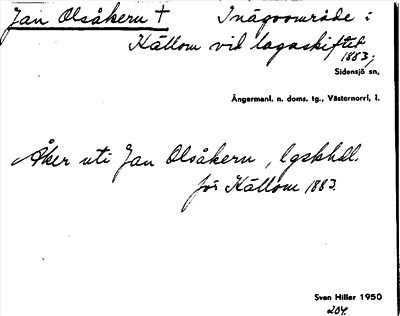 Jan Olsåkern † Inägoområde i
Källom vid lagaskiftet
1883;
Sidensjö sn,
Ångermanl. n. doms. tg., Västernorrl. l.
Åker uti Jan Olsåkern, lgskhdl.
för Källom 1883.
Sven Hiller 1950
204.